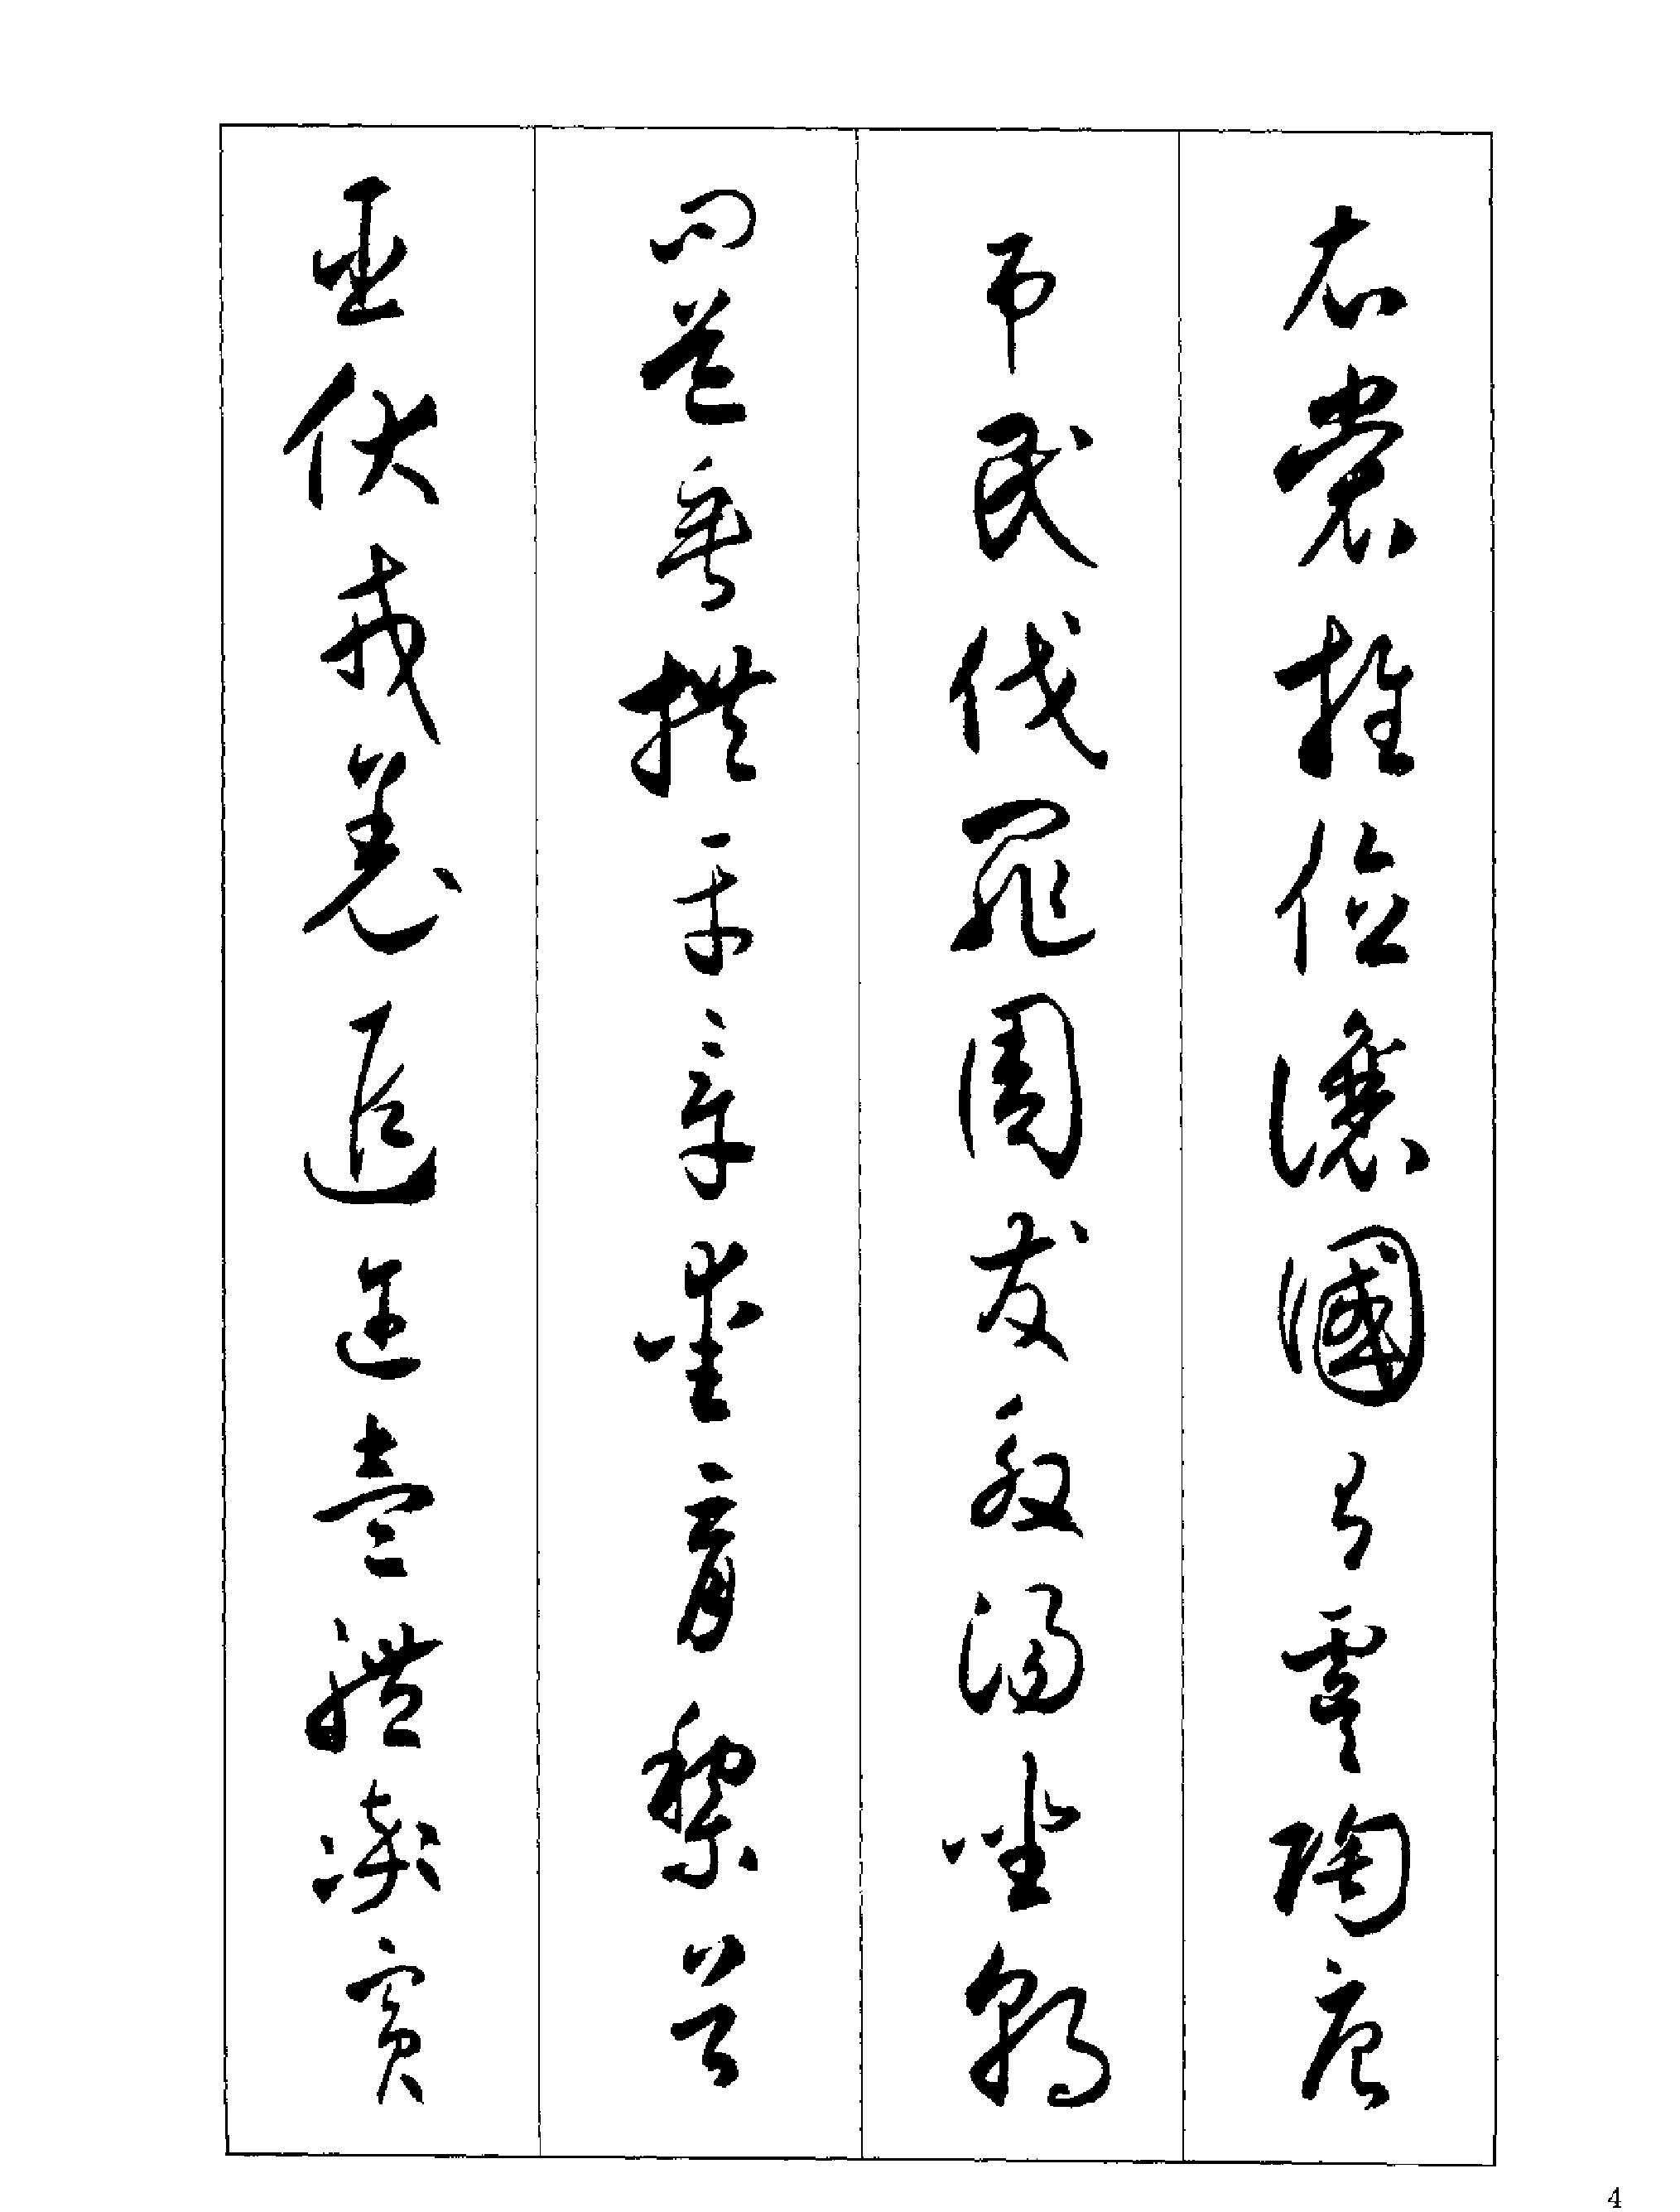 衣裳推位讓國有虞陶唐
吊民伐罪周發殷湯坐朝
問道垂拱平章愛育黎首
臣伏戎羌遐邇壹體率賓
4